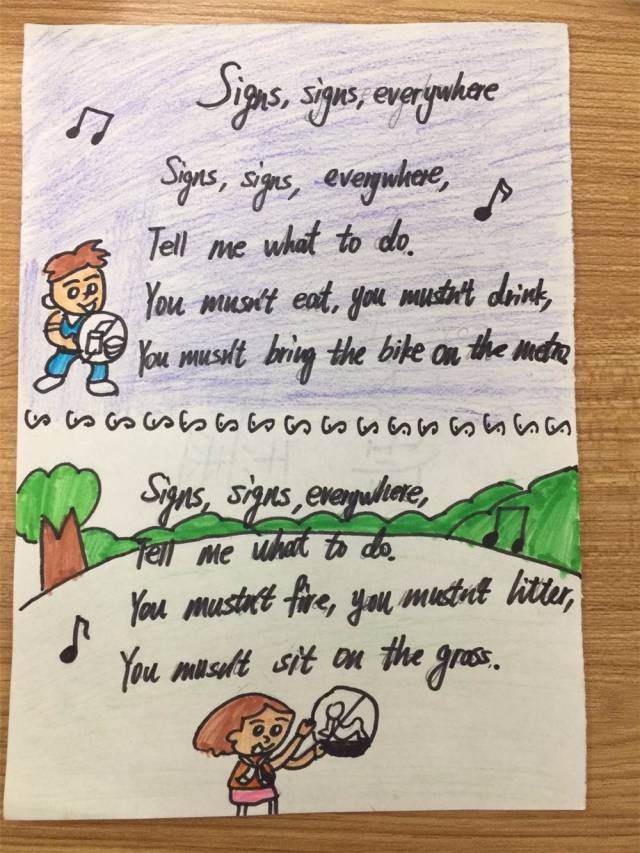 Signs, signs, everywhere
Signs, signs, everywhere,
Tell me what to do.
You musn't eat, you mustn't drink,
You musn't bring the bike on the metro.
Signs, signs, everywhere,
Tell me what to do.
You mustn't fire, you mustn't litter,
You musn't sit on the grass.